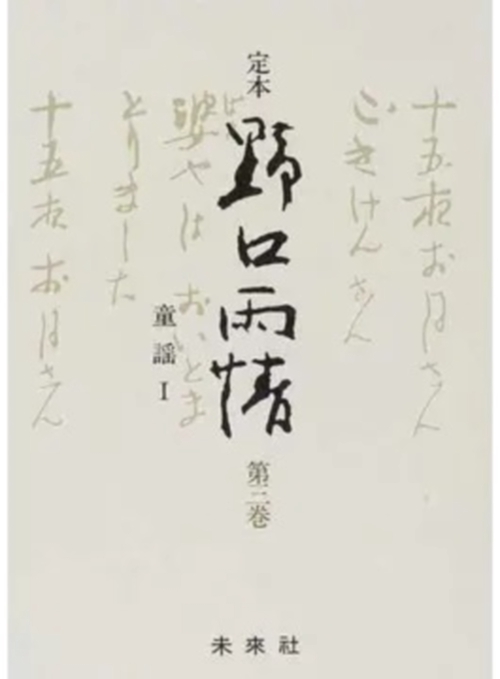 定本
野口雨情
第三巻
童謡 I
十五夜お月さん
ごきげんさん
婆やは おいとま
とりました
十五夜お月さん
未來社